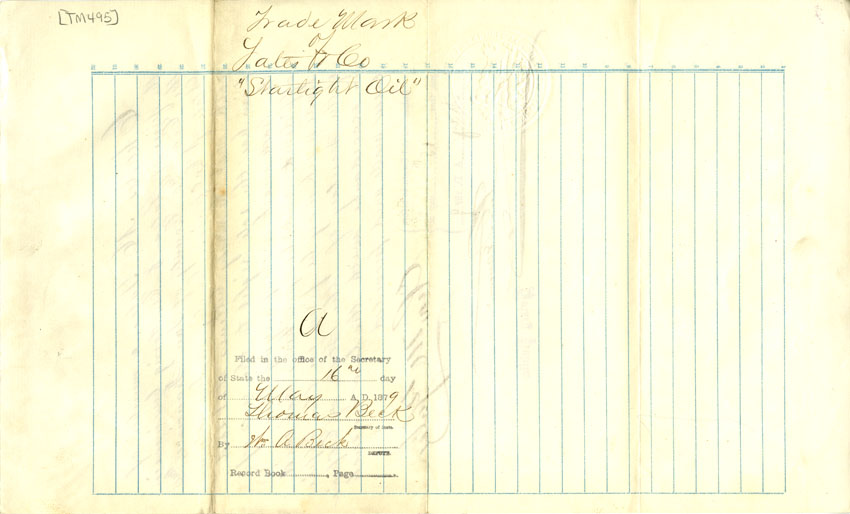 [TM495]
Trade Mark
of
Yates & Co
"Starlight Oil"
A
Filed in the office of the Secretary
of State the 16th day
of May A.D. 1879
Thomas Beck
Secretary of State.
By Wm A Beck
DEPUTY.
Record Book , Page .